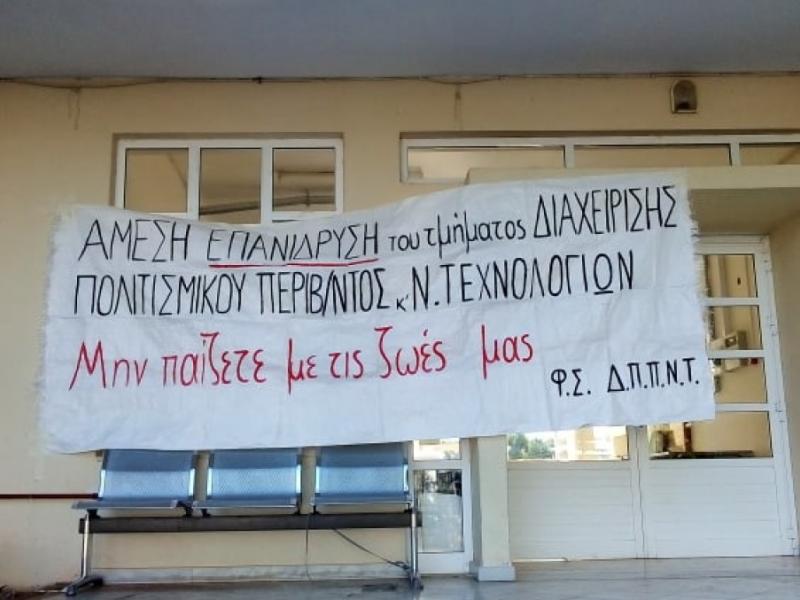 ΑΜΕΣΗ ΕΠΑΝΙΔΡΥΣΗ του τμήματος ΔΙΑΧΕΙΡΙΣΗΣ
ΠΟΛΙΤΙΣΜΙΚΟΥ ΠΕΡΙΒ/ΝΤΟΣ κ' Ν. ΤΕΧΝΟΛΟΓΙΩΝ
Μην παίζετε με τις ζωές μας
Φ.Σ. Δ.Π.Π.Ν.Τ.